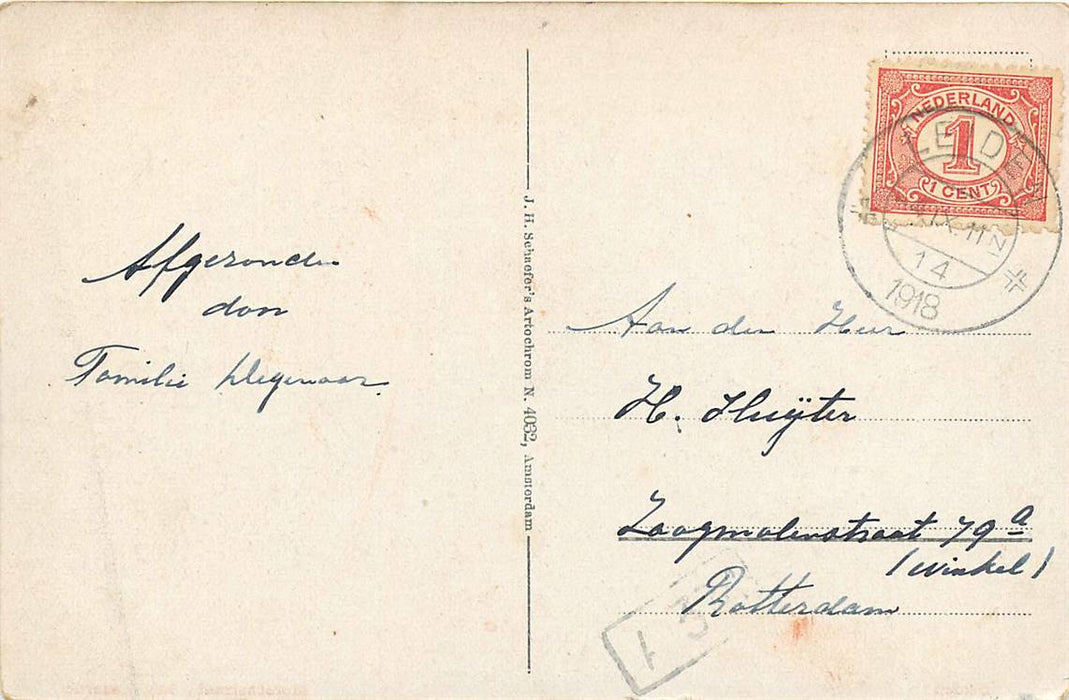 Afgezonden
door
Familie Wegenaar.
J. H. Schaefer's Artochrom N. 4032, Amsterdam
NEDERLAND
1
1 CENT
LEIDEN
14
1918
Aan den Heer
H. Sluijter
Zaagmolenstraat 79a
(winkel)
Rotterdam